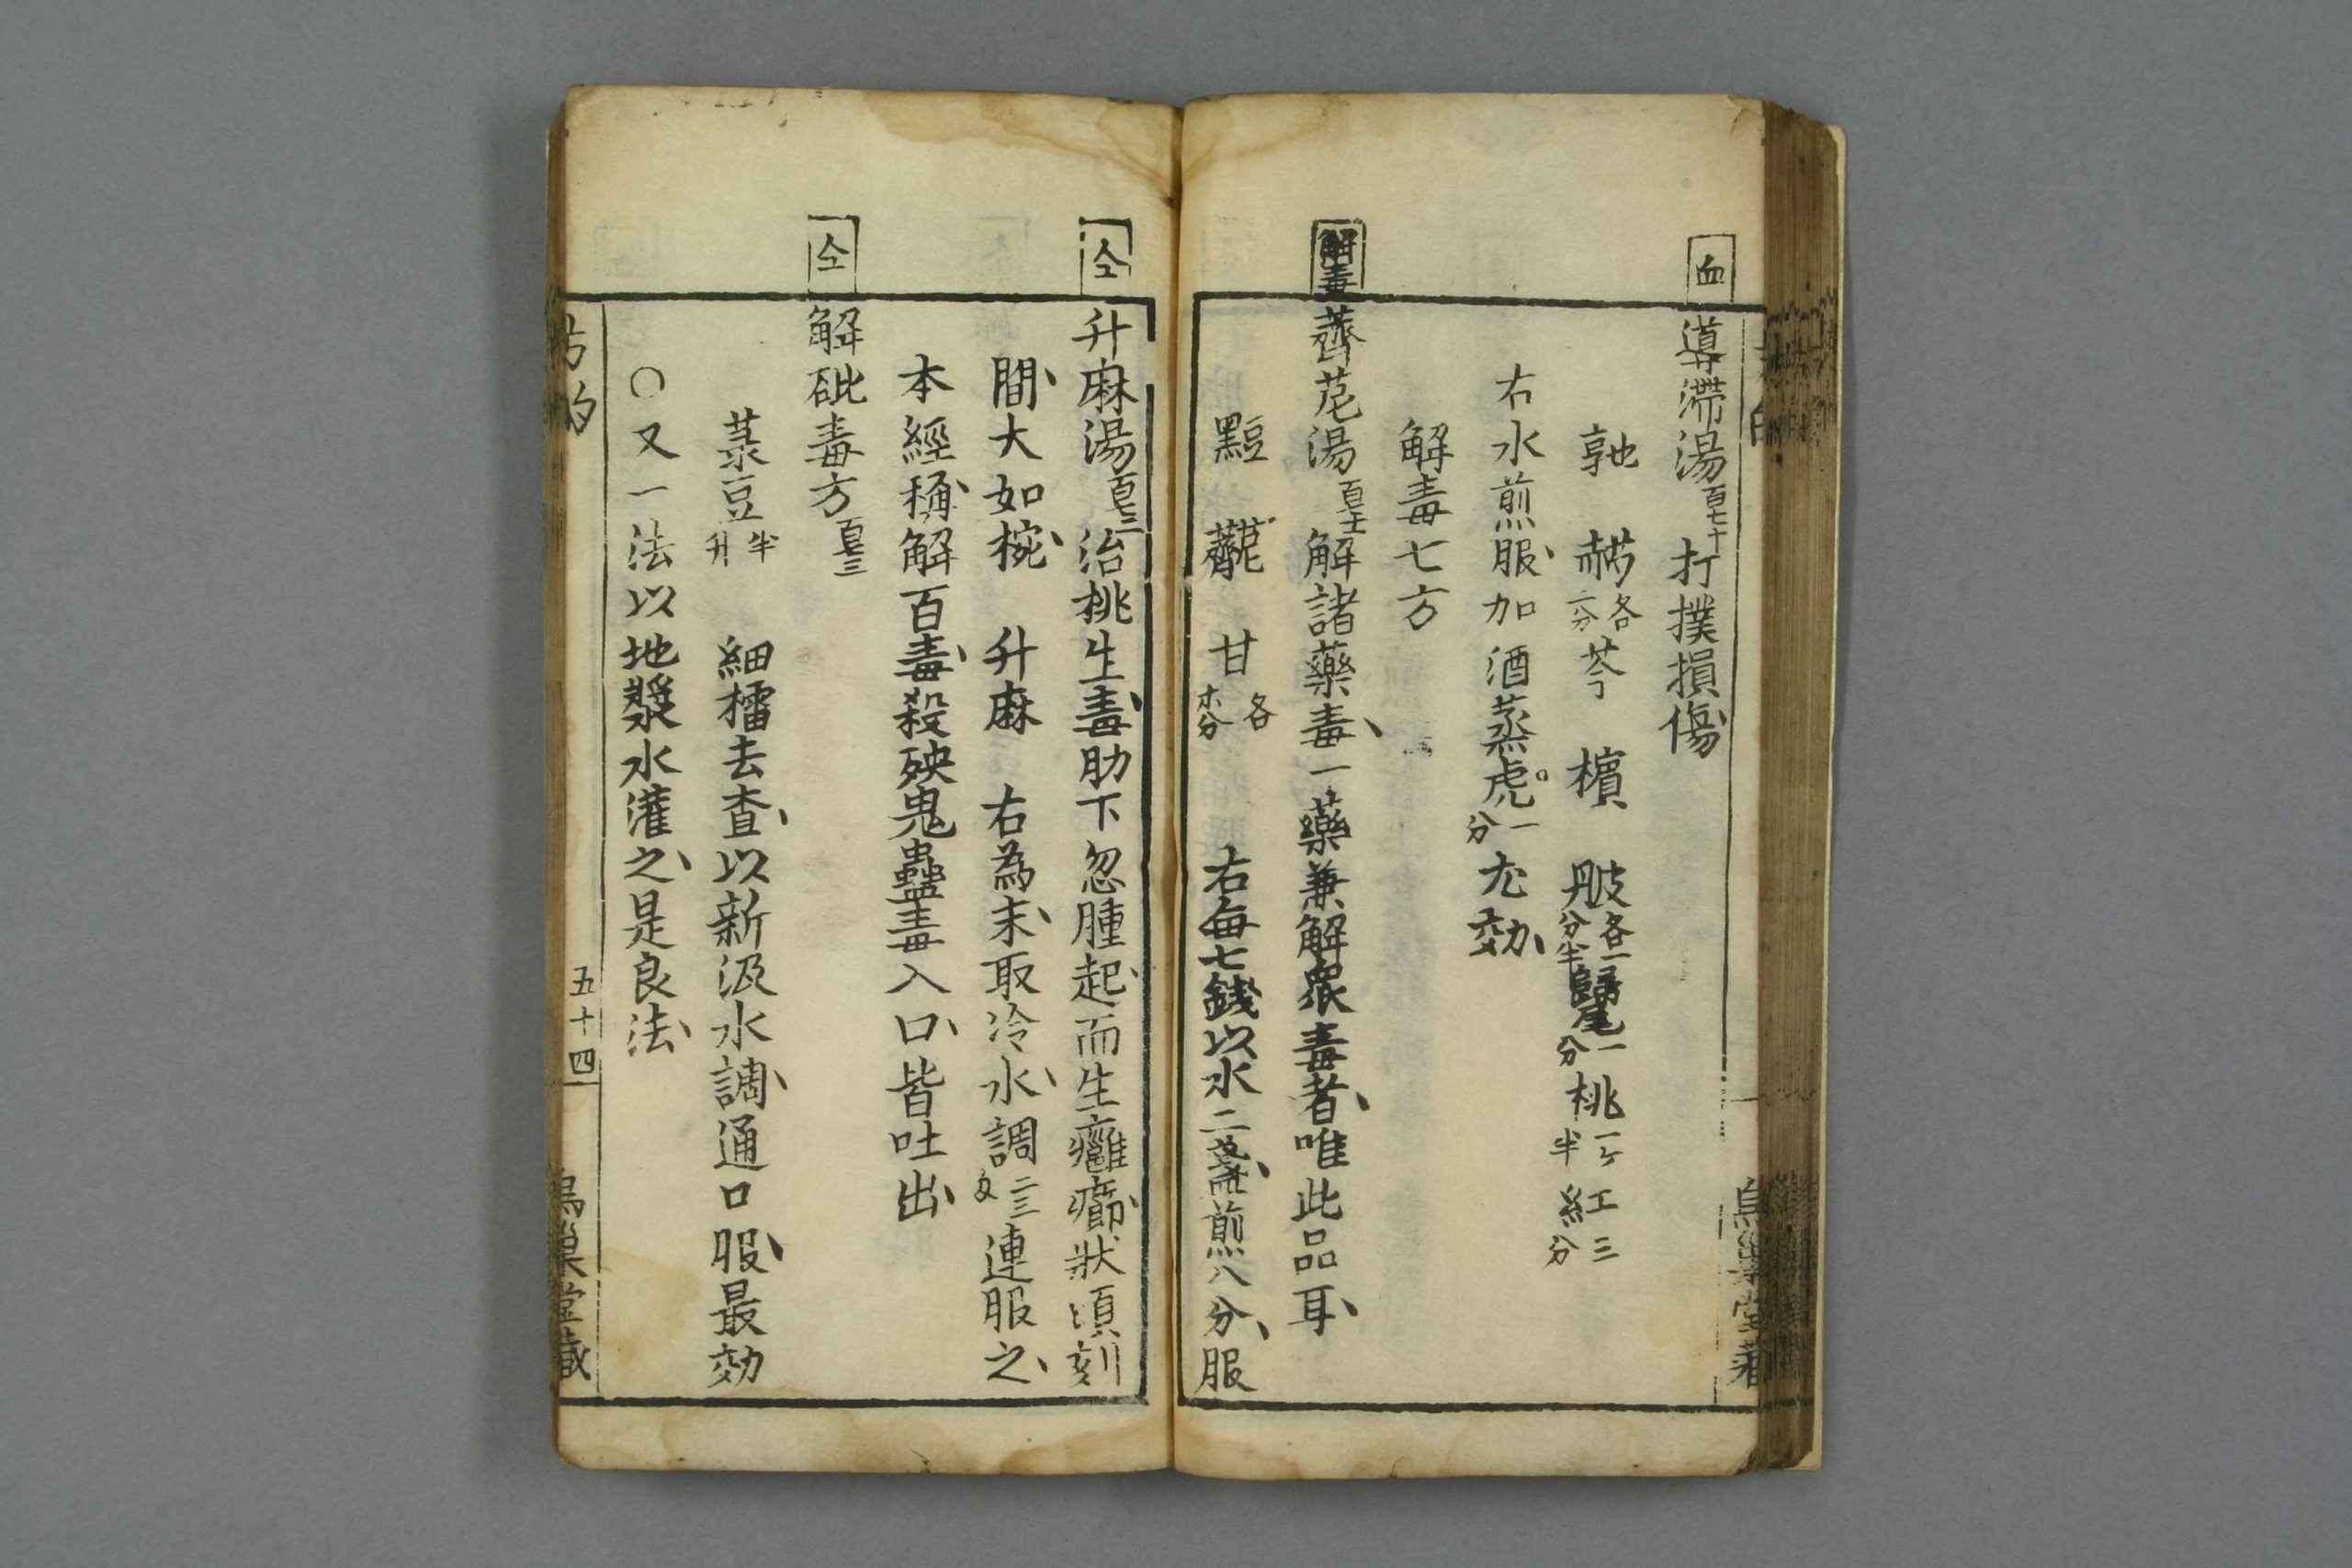 血
導滯湯百七十打撲損傷
各二分芩 檳 各一分半歸尾一分桃一ケ半紅三分
右水煎服加酒蒸虎一分尤効
解毒七方
解毒
薺苨湯百七十一解諸藥毒一藥兼解衆毒者唯此品耳
甘各 右每七錢以水二盞煎八分服
仝
升麻湯 治桃生毒肋下忽腫起而生癰癤狀頃刻
間大如椀 升麻 右為末取冷水調二三匁連服之
本經稱解百毒殺殃鬼蠱毒入口皆吐出
仝
解砒毒方
菉豆半升 細擂去査以新汲水調通口服最効
○又一法以地漿水灌之是良法
五十四
烏巢堂藏